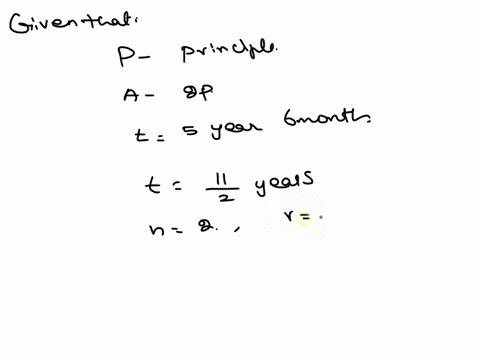 Given that:
P - principle.
A - 2P
t = 5 year 6 months
t = 11/2 years
n = 2. , r = .